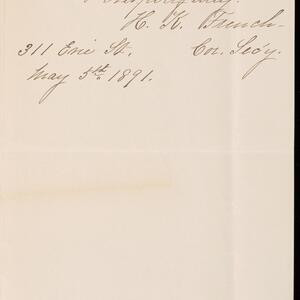 Respectfully.
H. K. French-
311 Erie St. Cor. Sec'y.
May 5th 1891.